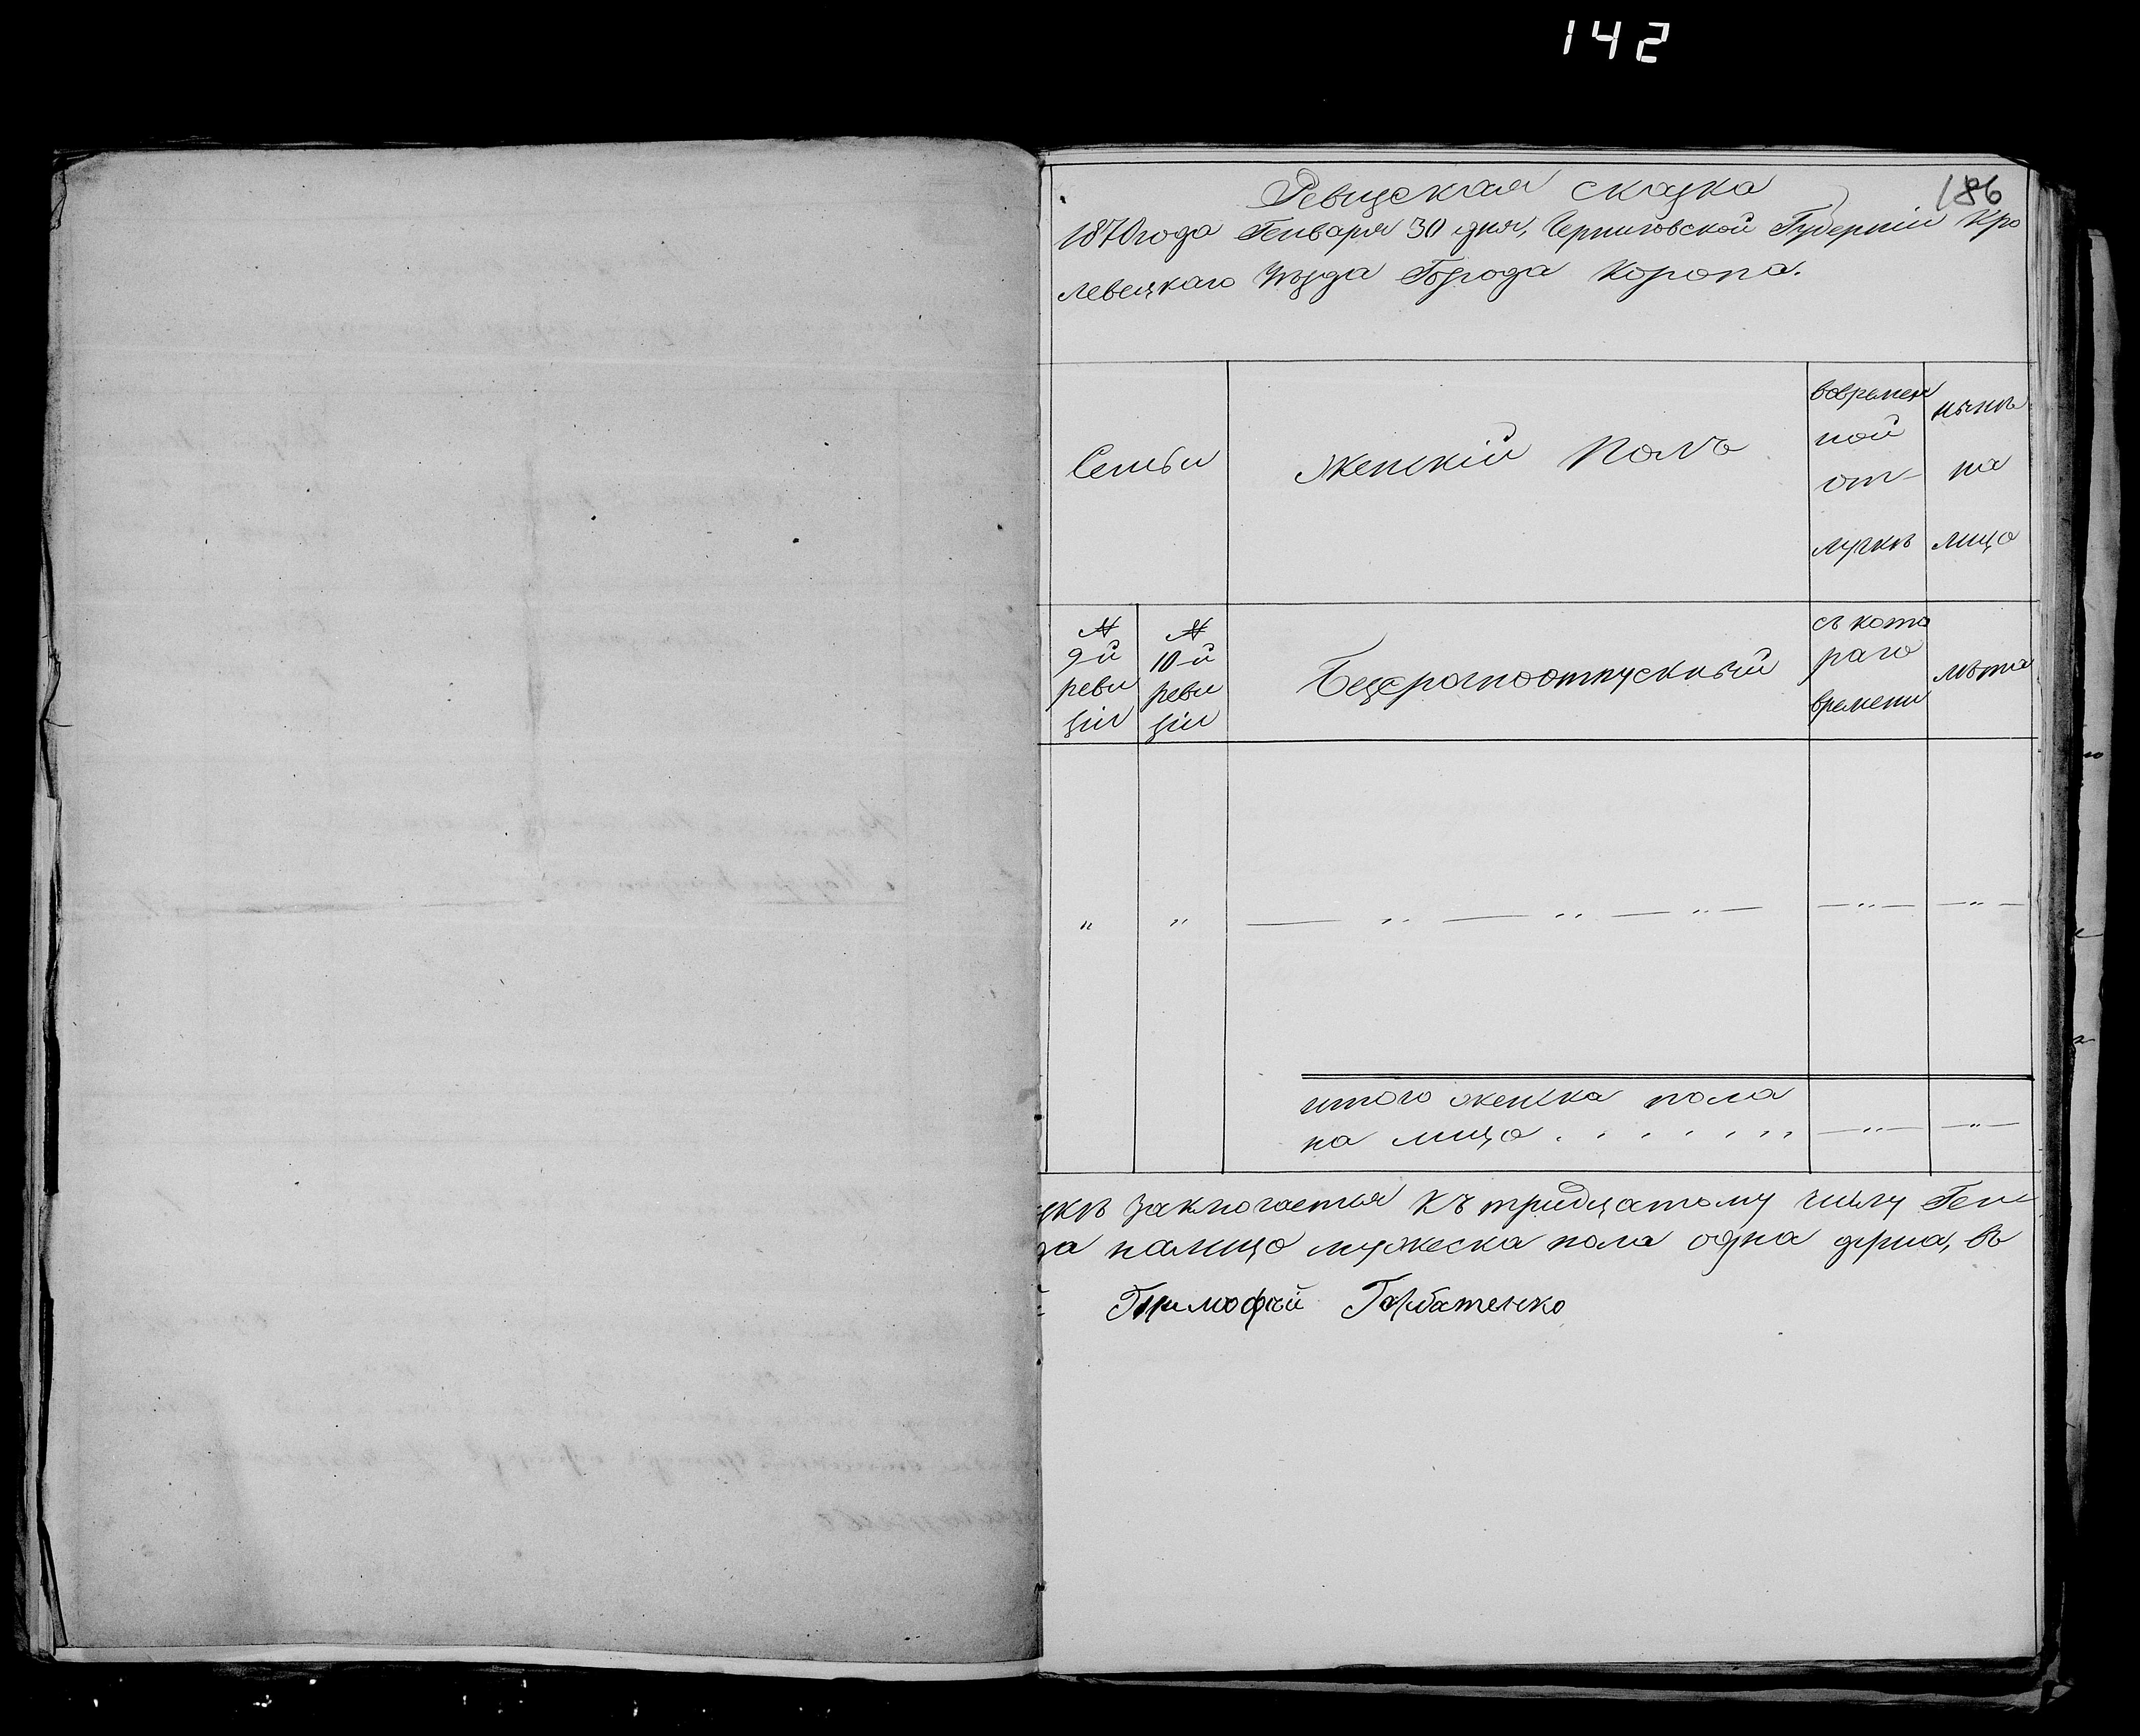 142
186
Ревизская сказка
1870 года Генваря 30 дня, Черниговской Губерніи Кро
левецкаго Уѣзда Города Коропа.
Семьи
Женскій Полъ
вовремен
ной
от-
лучкѣ
нынѣ
на
лицо
№
9-й
реви
зіи
№
10-й
реви
зіи
Безсрочноотпускный
съ кото
раго
времени
лѣта
" " — " — " — " — — " — — " —
итого женска пола
на лицо . . . . . . " — " — — " —
заключается къ тридцатому числу Ген
налицо мужеска пола одна душа, въ
Тимофѣй Горбатенко